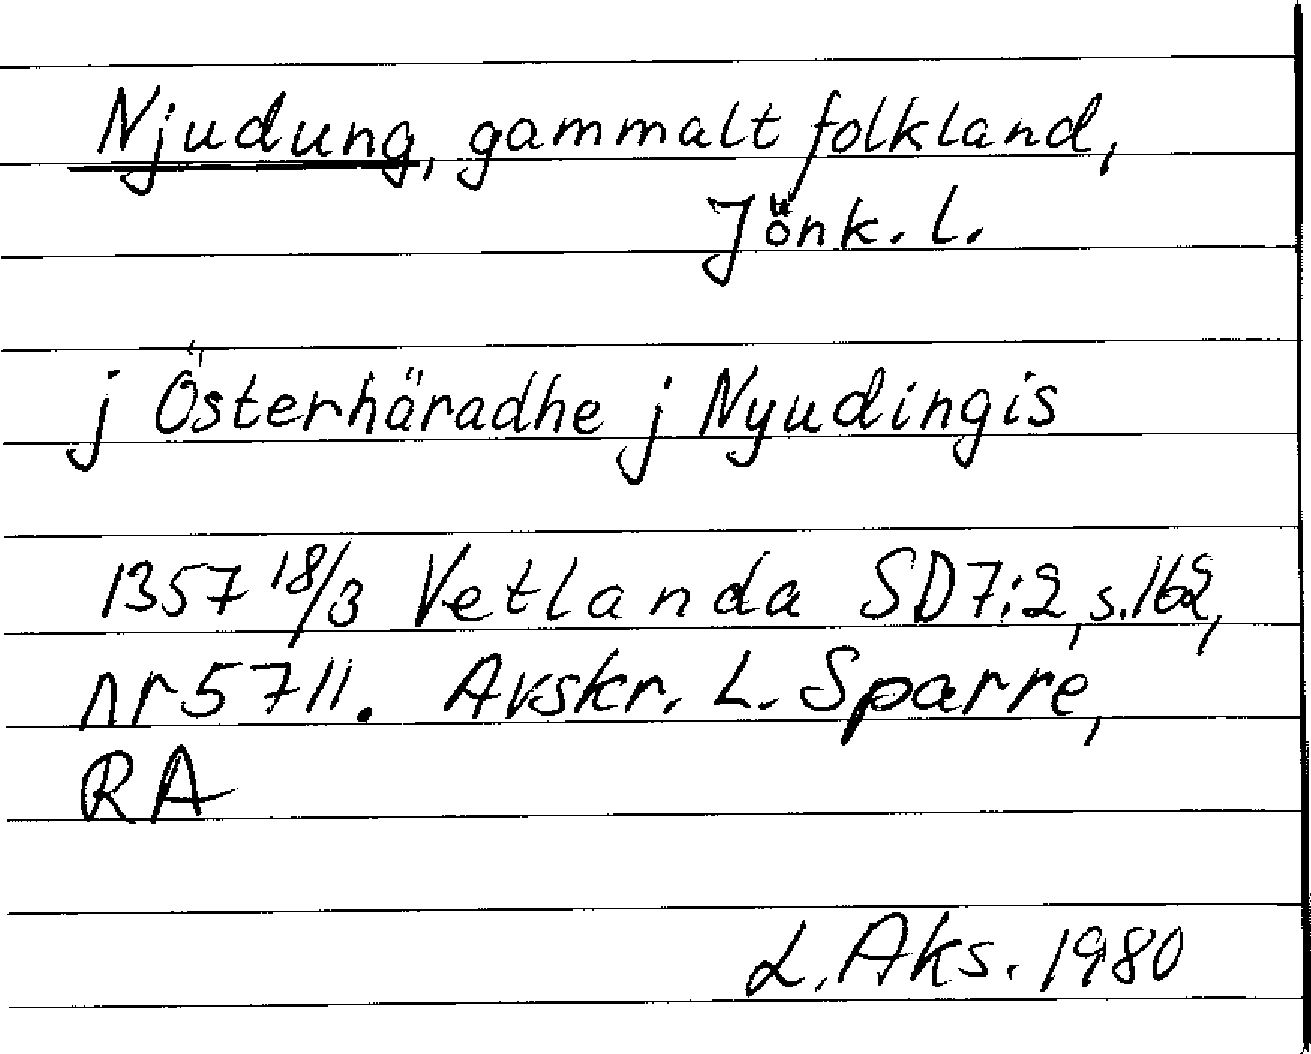 Njudung, gammalt folkland,
Jönk. l.
j Österhäradhe j Nyudingis
1357 18/3 Vetlanda SD7:2, s.162,
nr 5711. Avskr. L. Sparre,
RA
L. Aks. 1980